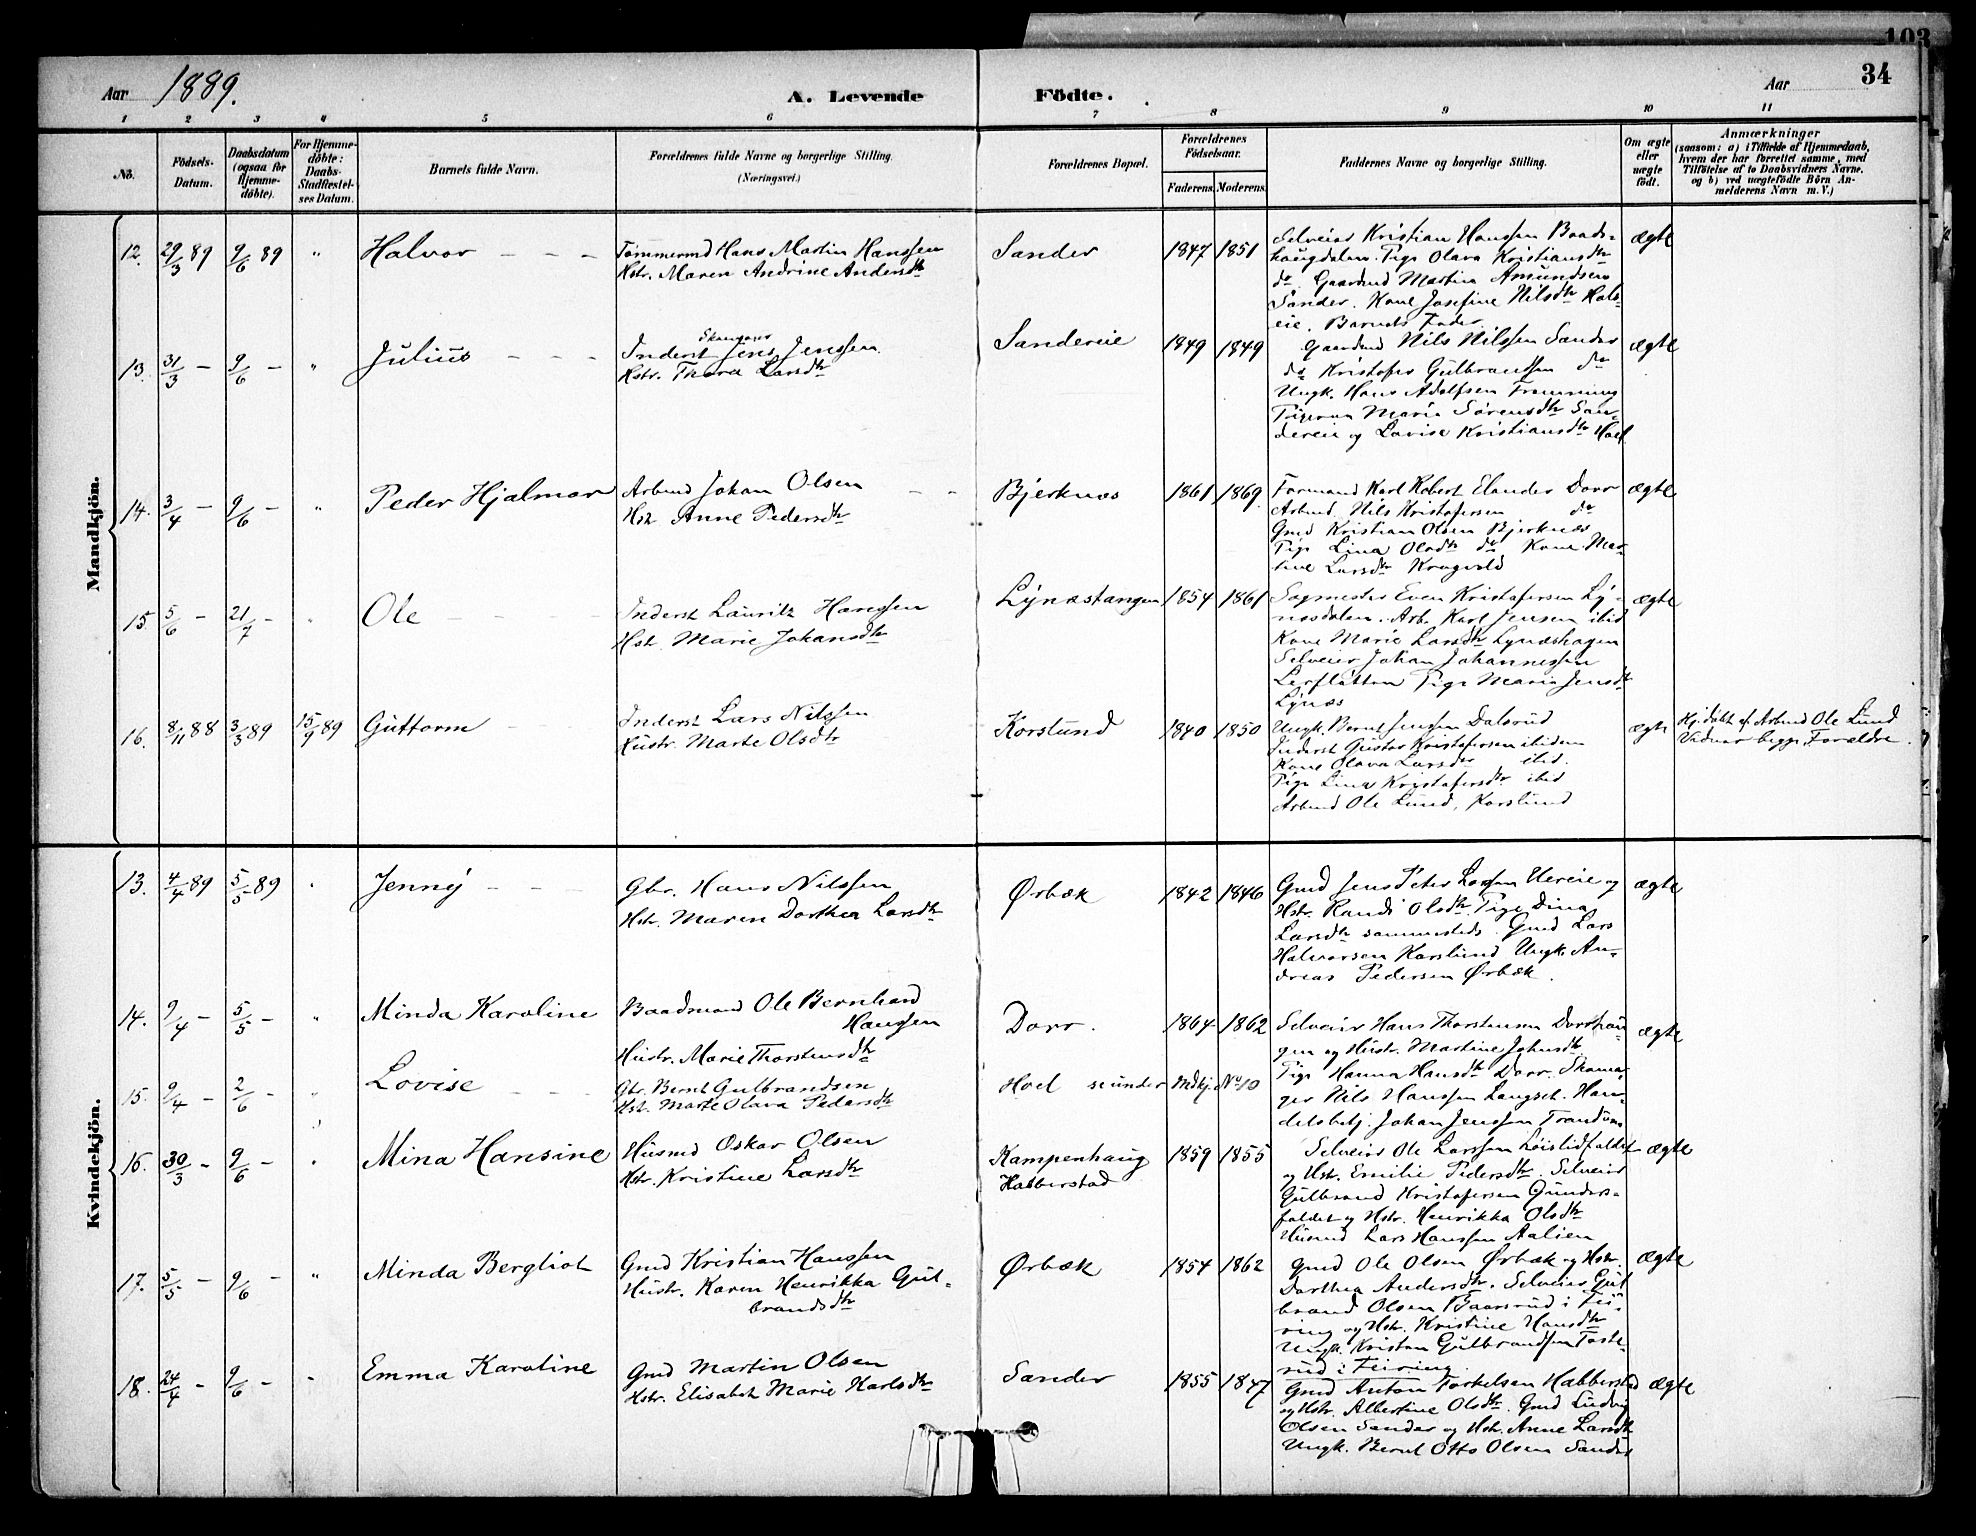 103
34
Aar 1889.
A. Levende Födte.
Aar
1 2 3 4 5 6 7 8 9 10 11
No.
Födsels-Datum.
Daabsdatum (ogsaa for Hjemme-døbte).
For Hjemme-døbte: Daabs-Stadfæstel-ses Datum.
Barnets fulde Navn.
Forældrenes fulde Navne og borgerlige Stilling. (Næringsvei.)
Forældrenes Bopæl.
Forældrenes Födselsaar.
Faderens. Moderens.
Faddernes Navne og borgerlige Stilling.
Om ægte eller uægte født.
Anmærkninger
(saasom: a) i Tilfælde af Hjemmedaab, hvem der har forrettet samme, med Tilföielse af to Daabsvidners Navne, og b) ved uægtefödte Börn An-melderens Navn m. V.)
Mandkjön.
12. 29/3 89 9/6 89 " Halvor
Tømmermd Hans Martin Hanssen
Hstr. Maren Andrine Andersdtr
Sander 1847 1851
Selveier Kristian Hanssen Baads-
haugdalen. Pige Olava Kristiansdtr
do. Gaardmd Martin Amundsen
Sander. Kone Josefine Nilsdtr Hols-
eie. Barnets Fader.
ægte
13. 31/3 - 9/6 - " Julius
Inderst Skomager Jens Jenssen
Hstr. Thora Larsdtr
Sandereie 1849 1849
Gaardmd Nils Nilssen Sander
do Kristofer Gulbrandsen do
Ungk. Hans Adolfsen
Pigerne Marie Sörensdtr San-
dereie og Lovise Kristiansdtr Hoel
ægte
14. 3/4 - 9/6 - " Peder Hjalmar
Arbmd Johan Olsen
Hst. Anne Pedersdtr
Bjerknes 1861 1869
Formand Karl Robert Elander Dorr
Arbmd. Nils Kristofersen do
Gmd Kristian Olsen Bjerknæs
Pige Lina Olsdtr do Kone Mar-
tine Larsdtr Kragvold
ægte
15. 5/6 - 21/7 - " Ole
Inderst Lauritz Hanssen
Hst. Marie Johansdtr
Lynæstangen 1854 1861
Sagmester Even Kristofersen Ly-
næsdalen. Arb. Karl Jensen ibid
Kone Marie Larsdtr Lynæshagen
Selveier Johan Johannessen
Lerflatten Pige Maria Jensdtr
Lynæs
ægte
16. 8/11 88 3/3 89 15/9 89 Guttorm
Inderst Lars Nilssen
Hustr. Marte Olsdtr
Korslund 1840 1850
Ungk. Bernt Jenssen Dalsrud
Inderst Gustav Kristofersen ibidem
Kone Olava Larsdtr ibid.
Pige Lina Kristofersdtr ibid
Arbmd Ole Lund, Korslund
ægte
Hj.døbt af Arbmd Ole Lund
Vidner begge Forældre.
Kvindekjön.
13. 4/4 89 5/5 89 " Jenny
Gbr. Hans Nilssen
Hstr. Maren Dorthea Larsdtr
Ørbæk 1842 1846
Gmd Jens Peter Larssen Uereie og
Hstr. Randi Olsdtr. Pige Dina
Larsdtr sammesteds. Gmd Lars
Halvorsen Korslund Ungk. An-
dreas Pedersen Ørbæk.
ægte
14. 9/4 - 5/5 - " Minda Karoline
Baadsmand Ole Bernhard
Hanssen
Hustr. Marie Thorstensdtr
Dorr. 1864 1862
Selveier Hans Thorstensen Dorrhau-
gen og Hustr. Martine Johnsdtr
Pige Hanna Hansdtr Dorr. Skoma-
ger Nils Hanssen Langset. Han-
delsbetj. Johan Jenssen Trandum
ægte
15. 9/4 - 2/6 - " Lovise
Gbr. Bernt Gulbrandsen
Hst. Marte Olava Pedersdtr
Hoel se under Mdkj. No 10
16. 30/3 - 9/6 - " Mina Hansine
Husmd Oskar Olsen
Hstr. Kristine Larsdtr
Kampenhaug
Habberstad
1859 1855
Selveier Ole Larssen
og Hst. Emilie Pedersdtr. Selveier
Gulbrand Kristofersen Gunders-
faldet og Hstr. Henrikka Olsdtr
Husmd Lars Hanssen Aalien
ægte
17. 5/5 - 9/6 - " Minda Bergliot
Gmd Kristian Hanssen
Hustr. Karen Henrikka Gul-
brandsdtr
Ørbæk 1854 1862
Gmd Ole Olsen Ørbæk og Hstr.
Dorthea Andersdtr. Selveier Gul
brand Olsen Baarsrud i Fei-
ring og Hstr. Kristine Hansdtr
Ungk. Kristian Gulbrandsen Toste-
rud i Feiring.
ægte
18. 24/4 - 9/6 - " Emma Karoline
Gmd Martin Olsen
Hstr. Elisabet Marie Karlsdtr
Sander 1855 1847
Gmd Anton Torkelsen Habberstad
og Hstr. Albertine Olsdtr. Gmd Ludvig
Olsen Sander og Hst. Anne Larsdtr
Ungk. Bernt Otto Olsen Sander
ægte